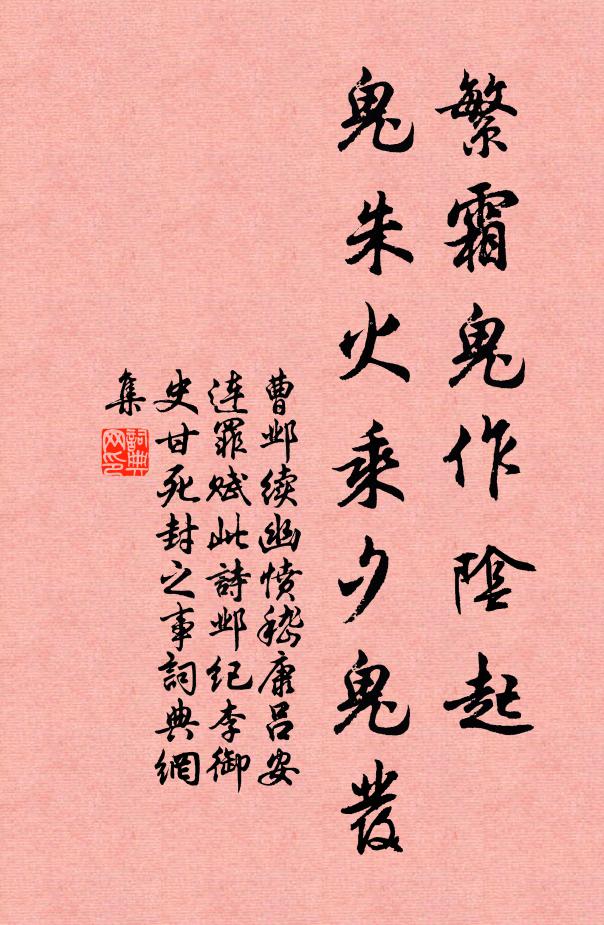 繁霜鬼作陰起
鬼朱火乘夕鬼發
曹邺续幽愤嵇康吕安
连罪赋此詩邺纪李御
史甘死封之事詞典網
集
詞典网印